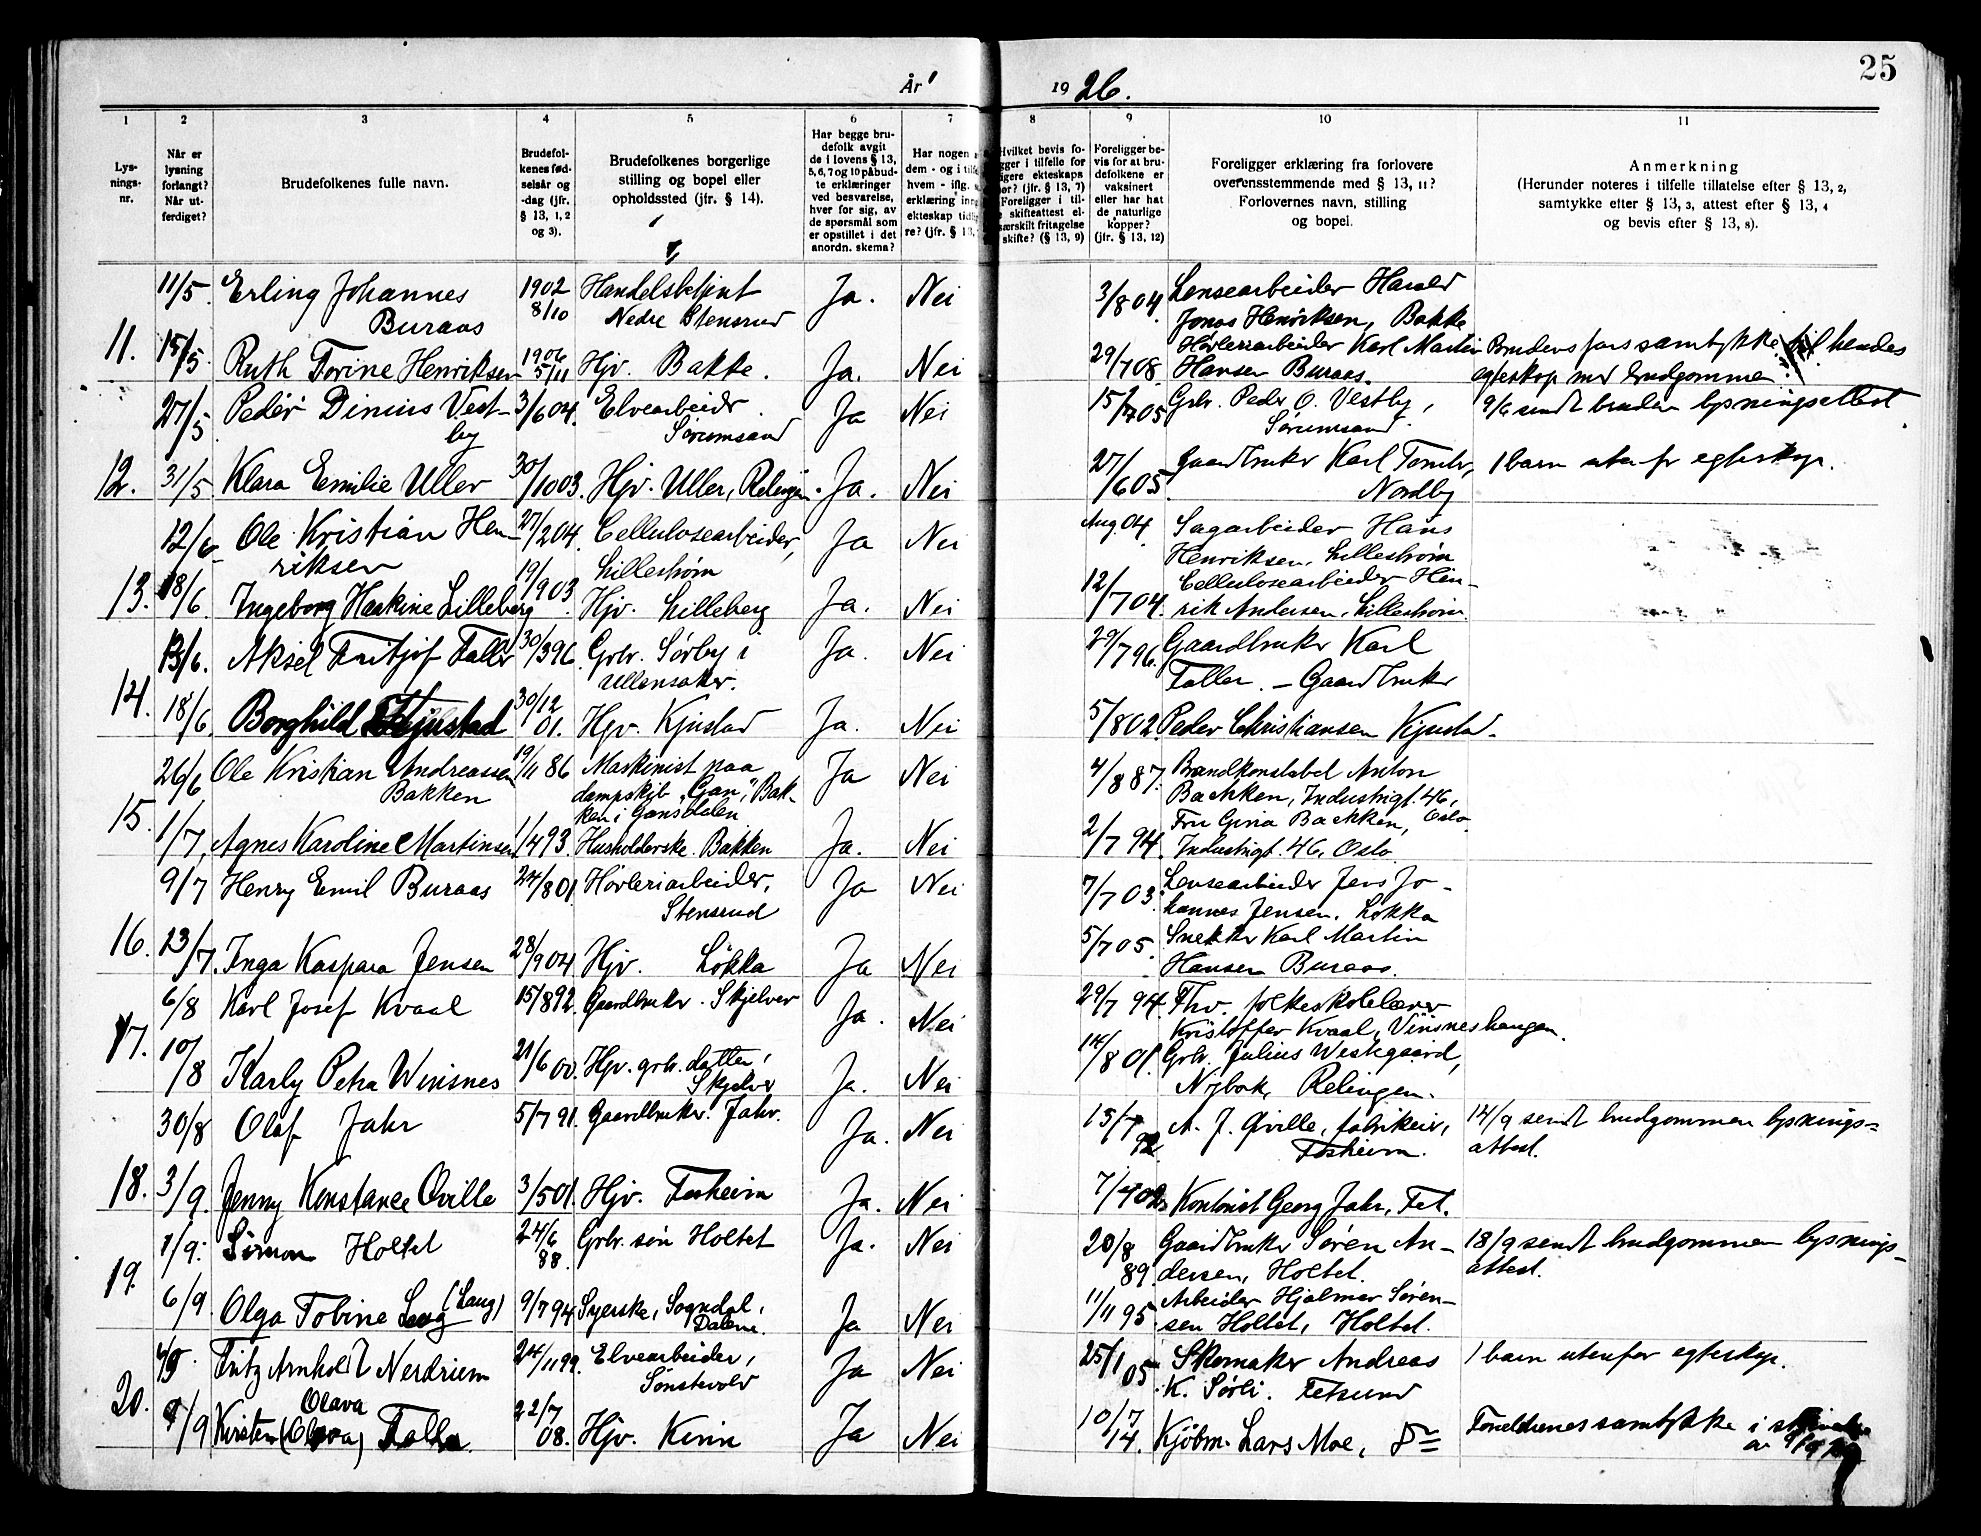 25
År 1926.
1 2 3 4 5 6 7 8 9 10 11
Lys-
nings-
nr.
Når er
lysning
forlangt?
Når ut-
ferdiget?
Brudefolkenes fulle navn.
Brudefol-
kenes fød-
selsår og
-dag (jfr.
§ 13, 1, 2
og 3).
Brudefolkenes borgerlige
stilling og bopel eller
opholdssted (jfr. § 14).
Har begge bru-
defolk avgit
de i lovens § 13,
5, 6, 7 og 10 påbud-
te erklæringer
ved besvarelse,
hver for sig, av
de spørsmål som
er opstillet i det
anordn. skema?
Har nogen
dem - og i
hvem - iflg.
erklæring
ekteskap
re? (jfr. § 13,
Hvilket bevis fo-
i tilfelle for
ekteskaps
(jfr. § 13, 7)
Foreligger i til-
skifteattest el-
særskilt fritagelse
skifte? (§ 13, 9)
Foreligger be-
vis for at bru-
defolkene er
vaksinert
eller har hat
de naturlige
kopper?
(jfr. § 13, 12)
Foreligger erklæring fra forlovere
overensstemmende med § 13, 11?
Forlovernes navn, stilling
og bopel.
Anmerkning
(Herunder noteres i tilfelle tillatelse efter § 13, 2,
samtykke efter § 13, 3, attest efter § 13, 4
og bevis efter § 13, 8).
11/5 Erling Johannes 1902 Handelsbetjent Ja. Nei 3/8 04 Lensearbeider Harald
Buraas 8/10 Nedre Stensrud Jonas Henriksen, Bakke
11. 15/5 Ruth Torine Henriksen 1906 5/11 Hjv. Bakke. Ja. Nei 29/7 08. Høvleriarbeider Karl Martin Brudens fars samtykke til hendes
Hansen Buraas. egteskap med brudgommen
27/5 Peder Dinius Vest- 3/6 04. Elvearbeider Ja Nei 15/7 05 Grbr. Peder O. Vestby, 9/6 sendt bruden lysningsattest
by Sørumsand Sørumsand.
12. 31/5 Klara Emilie Uller 30/10 03. Hjv. Uller, Relingen. Ja. Nei 27/6 05 Gaardbruker Karl 1 barn utenfor egteskap.
Nordby
12/6 Ole Kristian Hen- 27/2 04. Cellulosearbeider, Ja Nei Aug. 04. Sagarbeider Hans
riksen Lillestrøm Henriksen, Lillestrøm
13. 18/6 Ingeborg Haskine Lilleberg 19/9 03. Hjv. Lilleberg Ja. Nei 12/7 04. Cellulosearbeider Hen-
rik Andersen, Lillestrøm.
13/6. Aksel Fritjof Faller 30/3 96. Grbr. Sørby i Ja. Nei 29/7 96. Gaardbruker Karl
Ullensaker. Faller. - Gaardbruker
14. 18/6 Borghild Kjustad 30/12 01. Hjv. Kjustad Ja. Nei 5/8 02. Peder Christiansen Kjustad.
26/6 Ole Kristian Andreassen 19/11 86 Maskinist paa Ja Nei 4/8 87. Brandkonstabel Anton
Bakken dampskib "Gan", Bak- Backken, Industrigt. 46,
ken i Gansdalen Fru Gina Backken, Oslo.
15. 1/7. Agnes Karoline Martinsen 1/4 93. Husholderske. Bakken Ja. Nei 2/7 94. Industrigt. 46, Oslo.
9/7 Henry Emil Buraas 24/8 01 Høvleriarbeider, Ja Nei 7/7 03. Lensearbeider Jens Jo-
Stensrud hannes Jensen. Løkka
16. 13/7. Inga Kaspara Jensen 28/9 04 Hjv. Løkka Ja Nei 5/7 05. Snekker Karl Martin
Hansen Buraas.
6/8 Karl Josef Kvaal 15/8 92. Gaardbruker. Skjelver Ja. Nei 29/7 94. Fhv. folkeskolelærer
Kristoffer Kvaal, Vinsneshaugen.
17. 10/8 Karly Petra Winsnes 21/6 00. Hjv. grbr. datter, Ja. Nei 14/8 01. Grbr. Julius Westgaard,
Skjelver Nybak, Relingen.
30/8 Olaf Jahr 5/7 91. Gaardbruker. Jahr. Ja. Nei 13/7 92. A. J. Qville, fabrikeier, 14/9 sendt brudgommen lysnings=
Fosheim. attest.
18. 3/9. Jenny Konstance Qville 3/5 01. Hjv. Fosheim Ja. Nei 7/4 02. Kontorist Georg Jahr, Fet.
1/9. Simon Holtet 24/6 88. Grbr. søn Holtet Ja. Nei 20/8 89. Gaardbruker Søren An- 18/9 sendt brudgommen lysnings-
dersen, Holtet. attest.
19. 6/9. Olga Tobine Laug (Laug) 9/7 94 Syerske, Sogndal, Ja Nei 11/11 95. Arbeider Hjalmar Søren-
Dalene. sen Holtet, Holtet.
Fritz Arnholdt Nerdrum 24/11 99. Elvearbeider, Ja Nei 25/1 05. Skomaker Andreas 1 barn utenfor egteskap.
Sønstevold K. Sørli. Fetsund
Olava
20. 9/9 Kirsten (Olava) Falla. 22/7 08. Hjv. Kinn Ja Nei 10/7 14. Kjøbm. Lars Moe, Forældrenes samtykke i
av 9/9